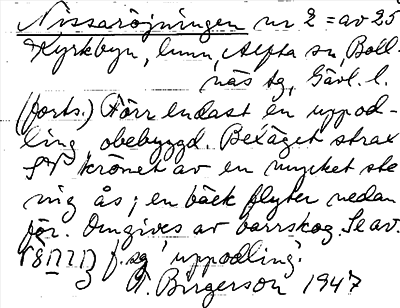 Nissaröjningen nr 2 = av 25
Kyrkbyn, hmn, Alfta sn, Boll-
näs tg, Gävl. l.
(forts.) Förr endast en uppod-
ling obebyggd. Beläget strax
SV krönet av en mycket ste
nig ås; en bäck flyter nedan
för. Omgives av barrskog. Se av.
f. sg 'uppodling'.
F. Birgerson 1947